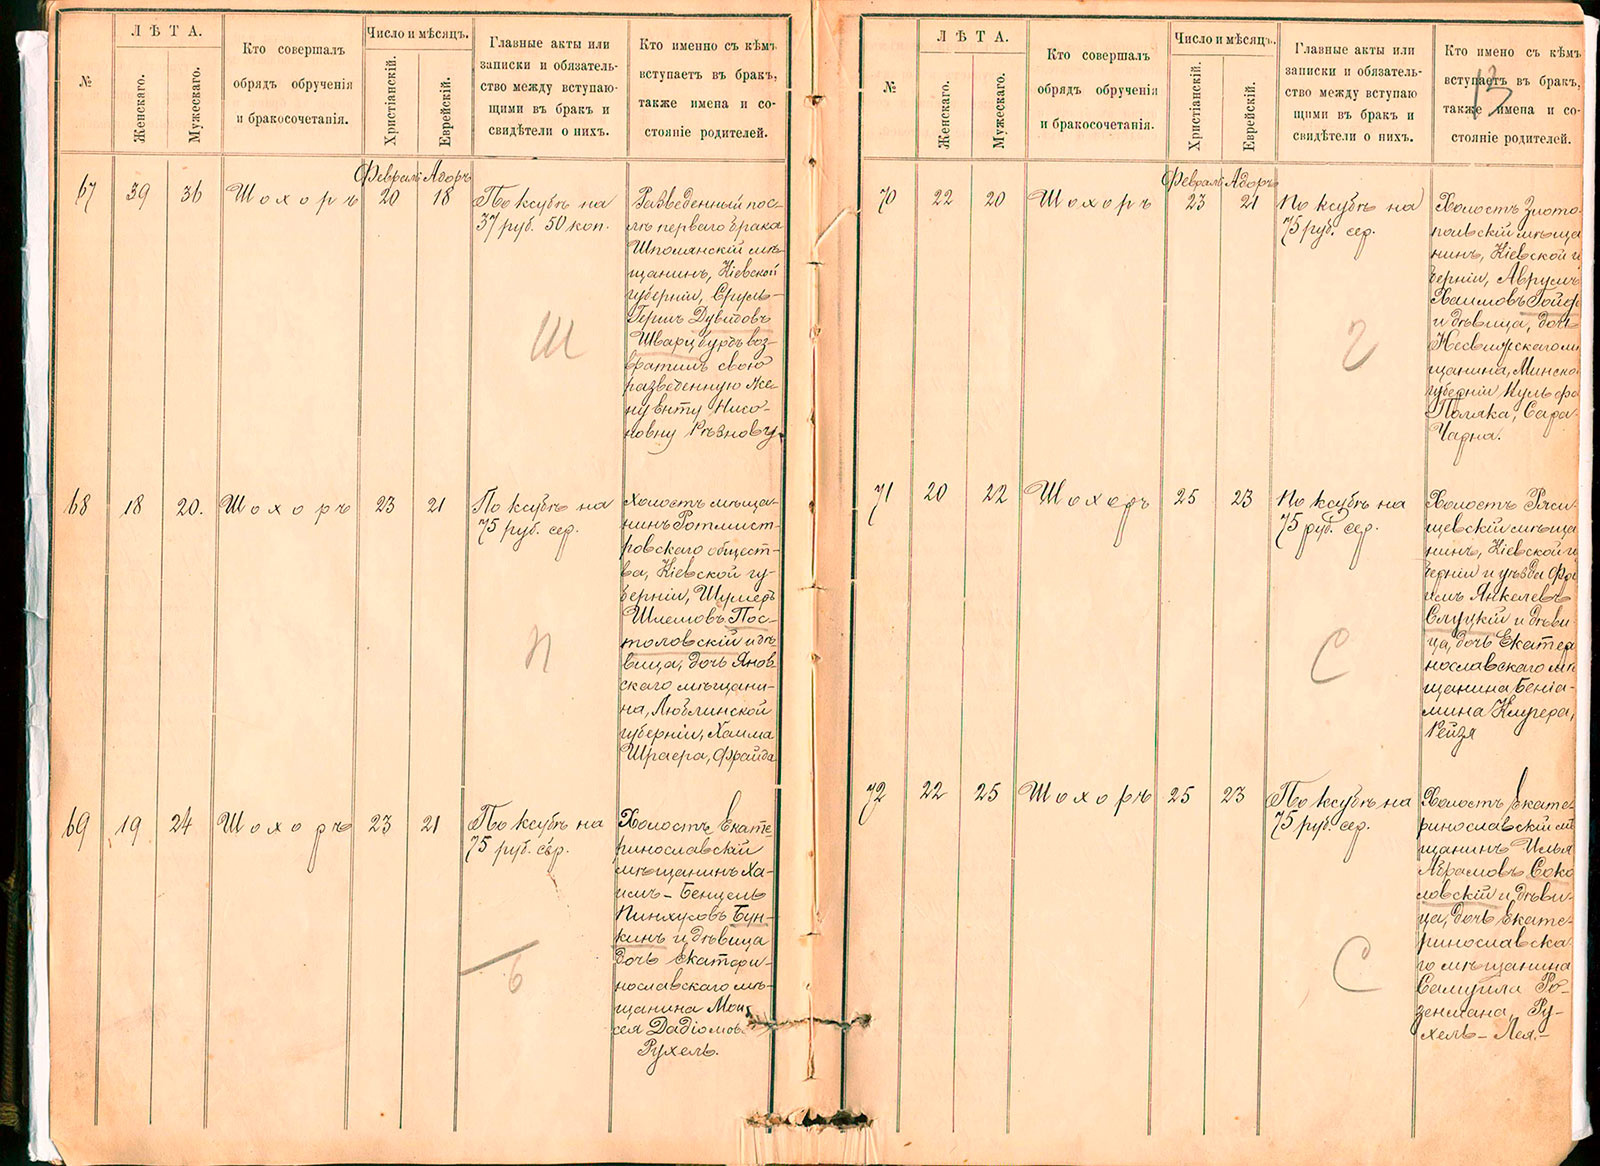 №
ЛѢТА.
Женскаго.
Мужескаго.
Кто совершалъ
обрядъ обрученія
и бракосочетанія.
Число и мѣсяцъ.
Христіанскій.
Еврейскій.
Главные акты или
записки и обязатель-
ство между вступаю-
щими въ бракъ и
свидѣтели о нихъ.
Кто именно съ кѣмъ
вступаетъ въ бракъ,
также имена и со-
стояніе родителей.
67
39
36
Шохоръ
Февраль
20
Адоръ
18
По ксубѣ на
37 руб. 50 коп.
Разведенный пос-
лѣ перваго брака
Шполянскій мѣ-
щанинъ, Кіевской
губерніи, Сруль-
Гершъ Дувидовъ
Шварцбурдъ воз-
вратилъ свою
разведенную же-
ну Енту Нисо-
новну Рѣзнову.
Ш
68
18
20.
Шохоръ
23
21
По ксубѣ на
75 руб. сер.
Холостъ мѣща-
нинъ Ротмист-
ровскаго общест-
ва, Кіевской гу-
берніи, Шумеръ
Шлемовъ Пос-
толовскій и дѣ-
вица, дочь Янов-
скаго мѣщани-
на, Люблинской
губерніи, Хаима
Шраера, Фрайда
П
69
19
24
Шохоръ
23
21
По ксубѣ на
75 руб. сер.
Холостъ, Екате-
ринославскій
мѣщанинъ Ха-
имъ-Бенцель
Пинхусовъ Бун-
кинъ и дѣвица
дочь Екатери-
нославскаго мѣ-
щанина Мои
сея Дадіомова
Рухель.
Б
№
ЛѢТА.
Женскаго.
Мужескаго.
Кто совершалъ
обрядъ обрученія
и бракосочетанія.
Число и мѣсяцъ.
Христіанскій.
Еврейскій.
Главные акты или
записки и обязатель-
ство между вступаю
щими въ бракъ и
свидѣтели о нихъ.
Кто имено съ кѣмъ
вступаетъ въ бракъ,
также имена и со-
стояніе родителей.
13
70
22
20
Шохоръ
Февраль
23
Адоръ
21
По ксубѣ на
75 руб. сер.
Холостъ Злото-
польскій мѣща
нинъ, Кіевской г
берніи, Аврумъ
Хаимовъ Гойф
и дѣвица, доч
Несвижскаго м
щанина, Минско
губерніи Кульфа
Поляка, Сара-
Чарна.
Г
71
20
22
Шохоръ
25
23
По ксубѣ на
75 руб. сер.
Холостъ Ряси-
щевскій мѣща
нинъ, Кіевской г
берніи и уѣзда Фро
имъ Янкелевъ
Слуцкій и дѣви
ца, дочь Екатер
нославскаго мѣ
щанина Беніа-
мина Клугера,
Рейзя
С
72
22
25
Шохоръ
25
23
По ксубѣ на
75 руб. сер.
Холостъ Екате-
ринославскій мѣ
щанинъ Илья
Абрамовъ Соко
ловскій и дѣви-
ца, дочь Екате-
ринославска
го мѣщанина
Самуила Ро-
зенмана, Ру-
хель-Лея.-
С